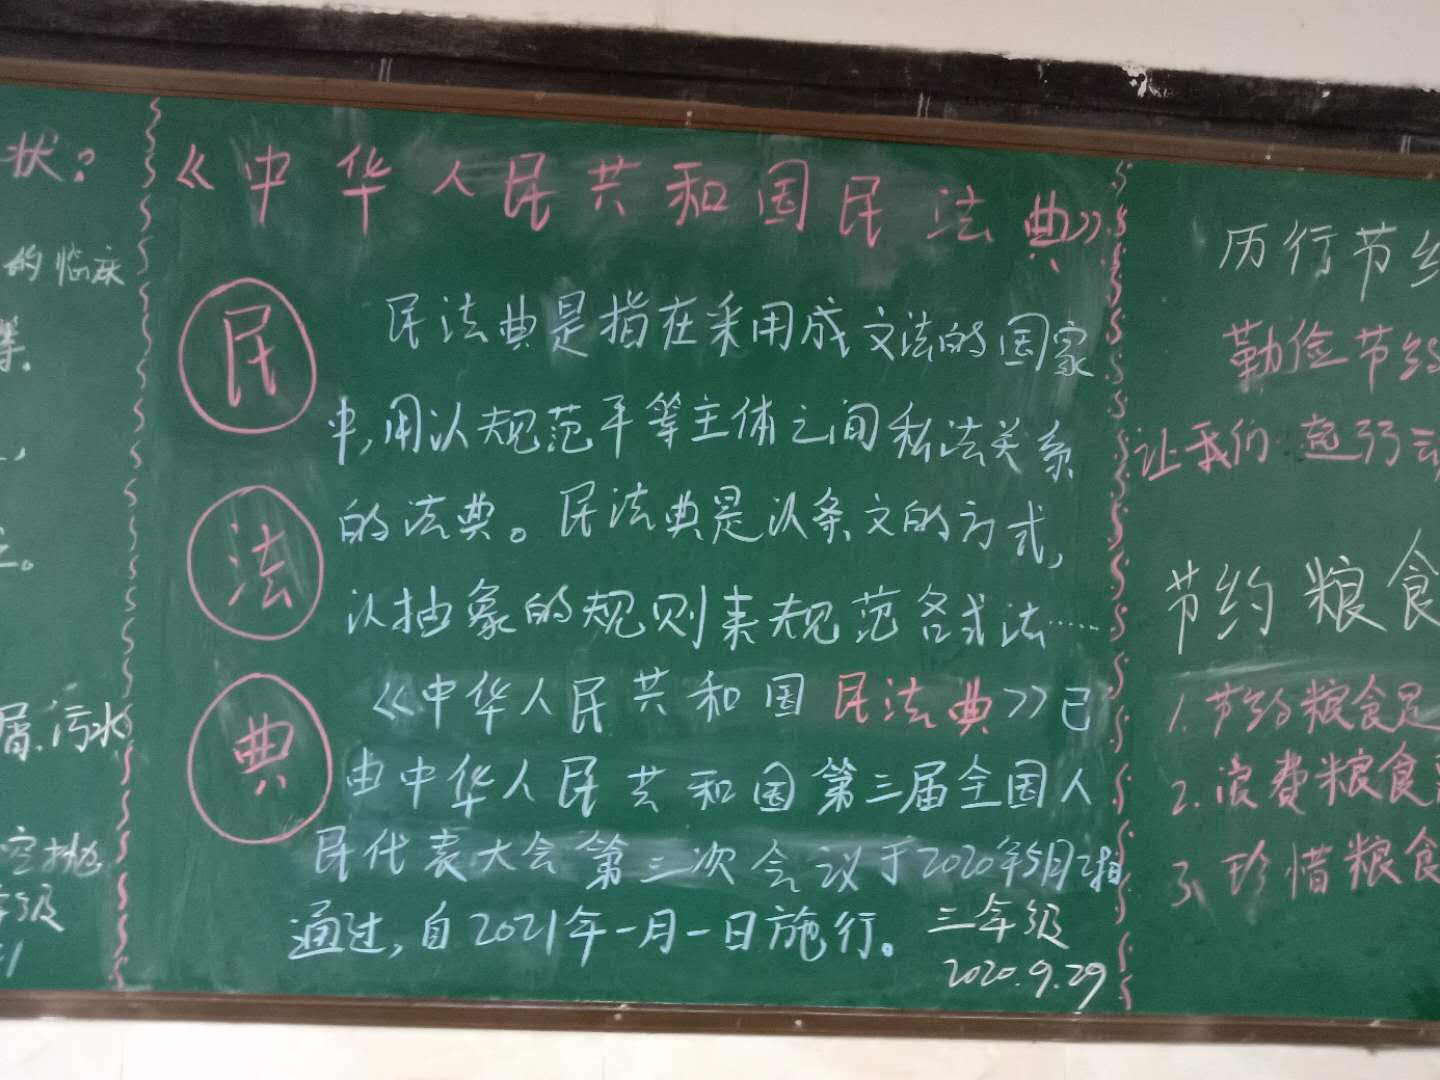 状:
的临床
等.
屑、污水
级
《中华人民共和国民法典》
民
法
典
民法典是指在采用成文法的国家
中,用以规范平等主体之间私法关系
的法典。民法典是以条文的方式,
以抽象的规则来规范各式法……
《中华人民共和国民法典》已
由中华人民共和国第三届全国人
民代表大会第三次会议于2020年5月
通过,自2021年一月一日施行。
三年级
2020.9.29
历行节
勤俭节约
让我们
节约粮食
1.节约粮食是
2.浪费粮食
3、珍惜粮食